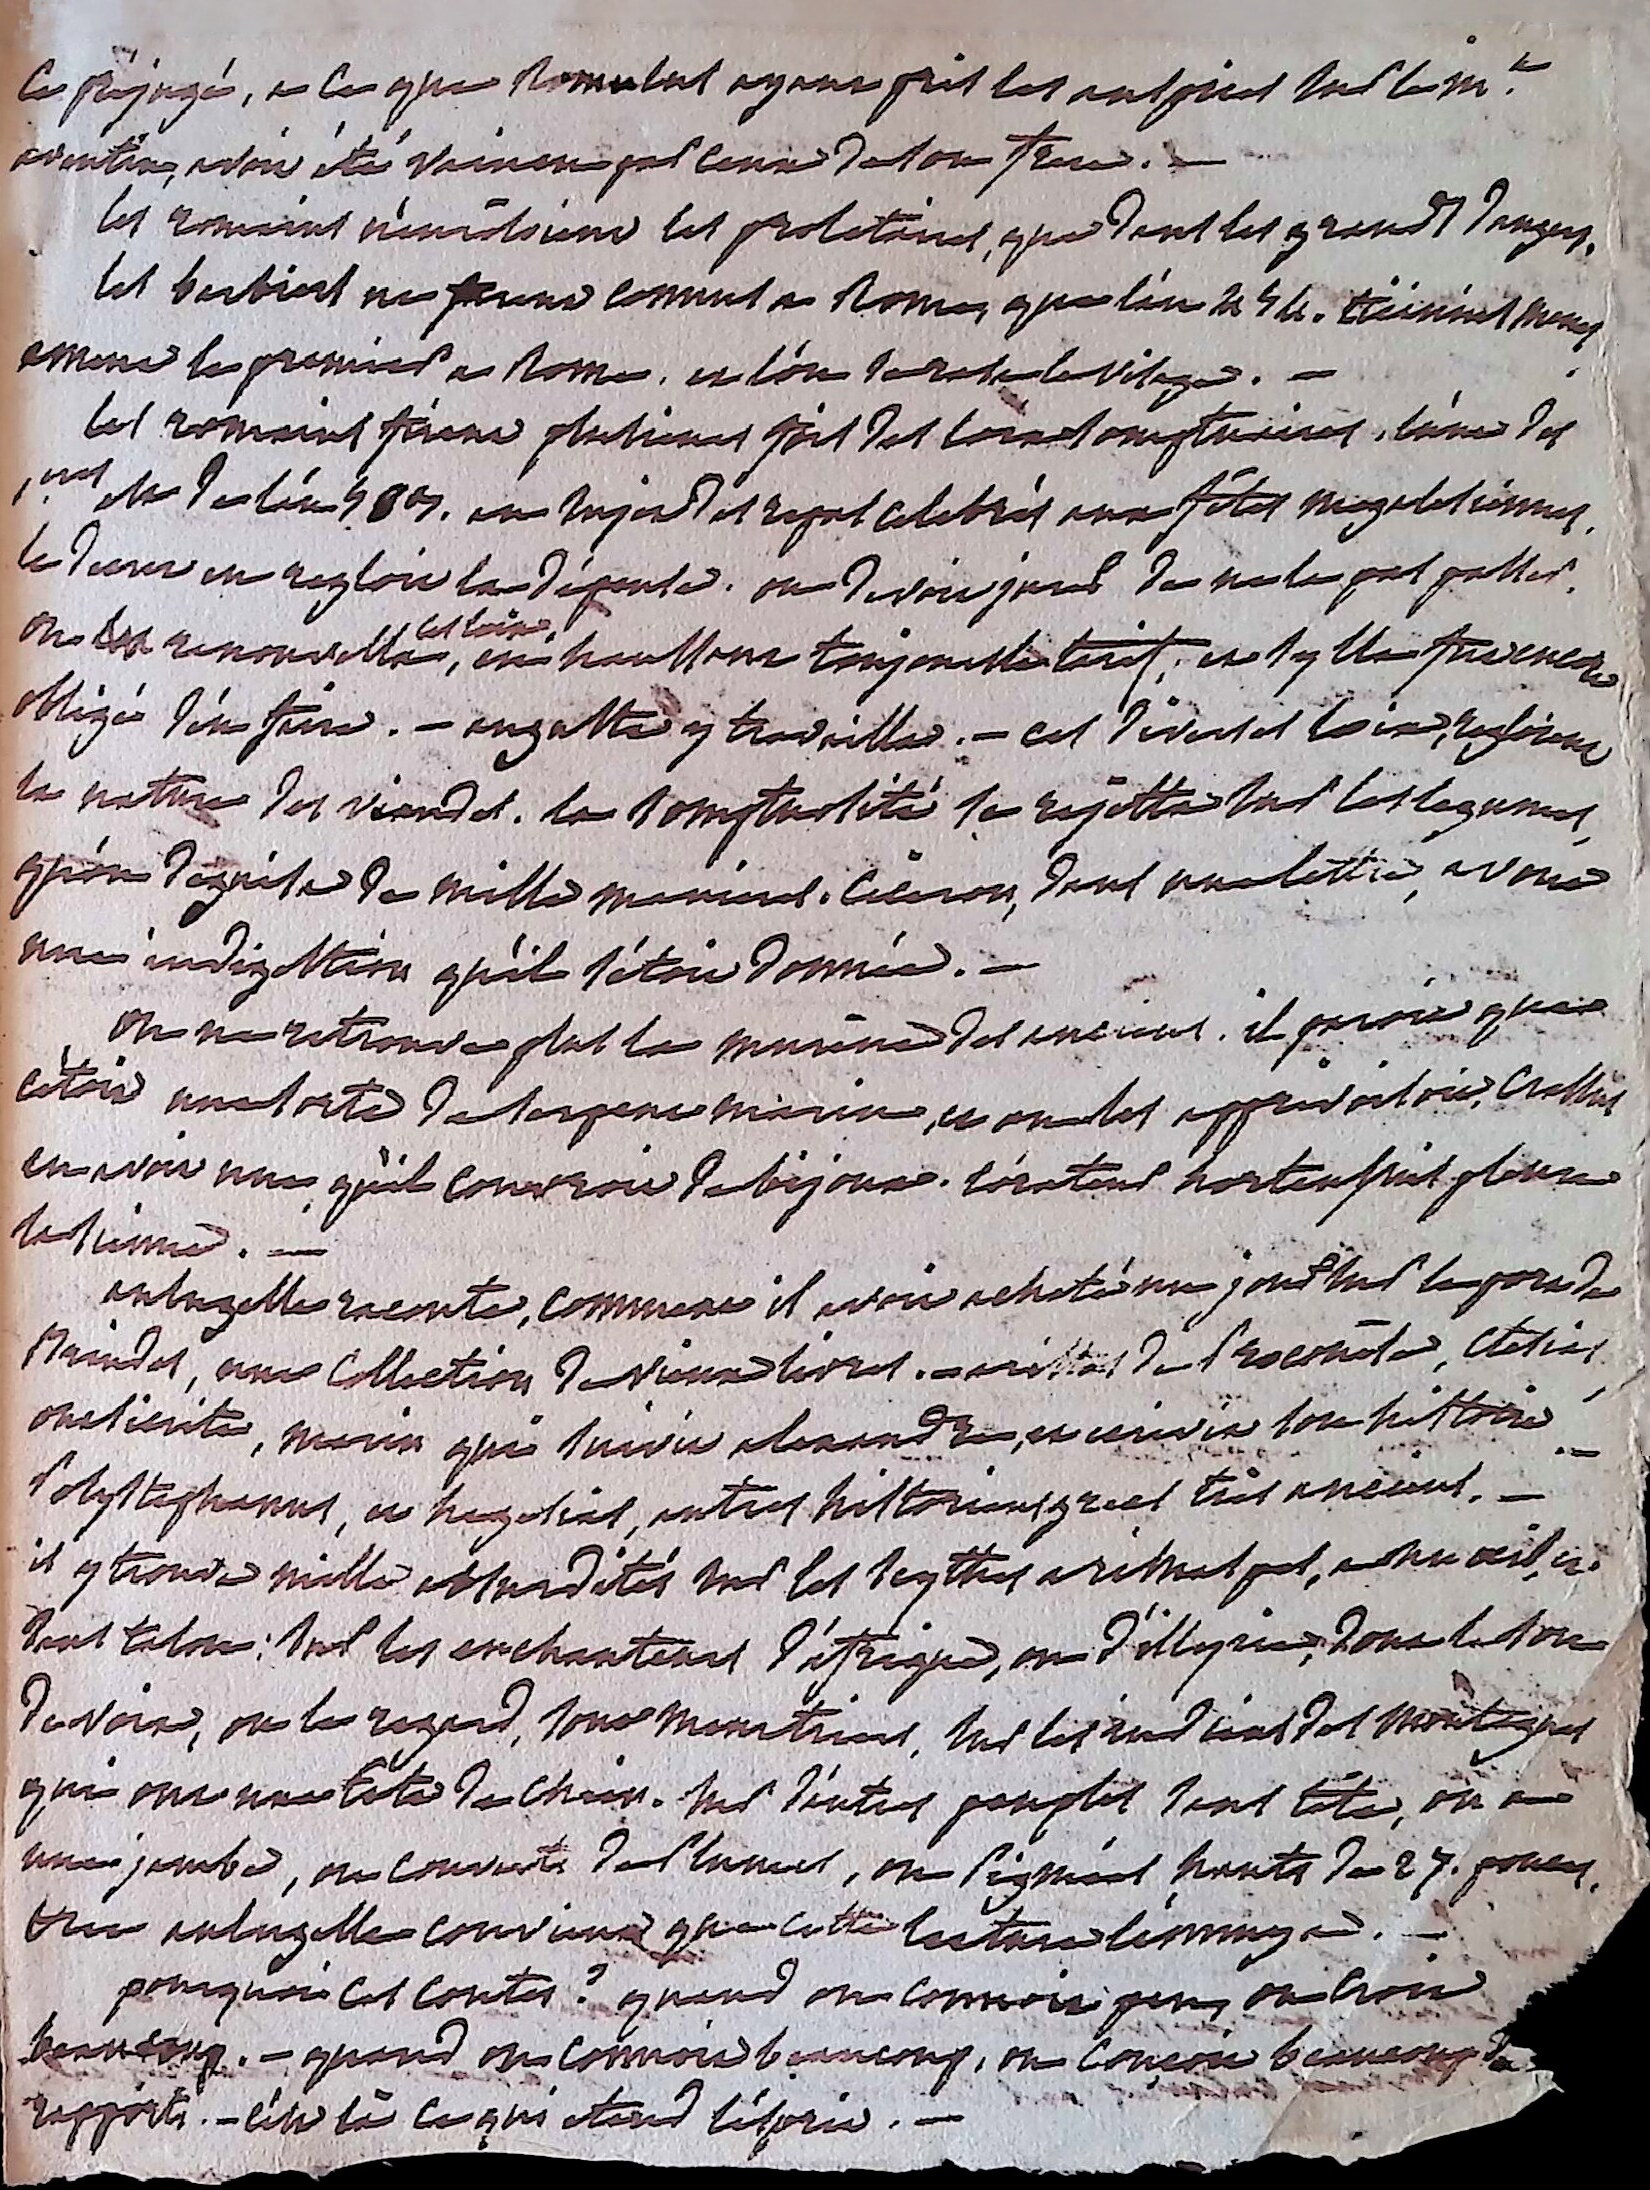 ce préjugé, a ce que Romulus ayant pris les auspices sur le m.t
aventin, avoit été vaincu par ceux de son frere. —
les romains n'enrôloient les proletaires, que dans les grands dangers.
les barbiers ne furent connus a Rome, que l'an 454. ticinius menas
amena le premier a Rome. et l'on se rasa le visage. —
les romains firent plusieurs fois des loix somptuaires, l'une des
1.eres est de l'an 587. au sujet des repas celebrés aux fêtes megalesiennes.
le decret en regloit la dépense. on devoit jurer de ne la pas passer.
on renouvella ces loix, en haussant toujours le tarif, et sylla fut encore
obligé d'en faire. — auguste y travailla. — ces diverses loix, regloient
la nature des viandes. la somptuosité se rejetta sur les legumes,
qu'on deguisa de mille manieres. Ciceron, dans une lettre, avoue
une indigestion qu'il s'étoit donnée. —
on ne retrouve plus la murène des anciens. il paroit que
c'étoit une sorte de serpent marin, et on les apprivoisoit. Crassus
en avoit une, qu'il couvroit de bijoux. l'orateur hortensius pleura
la sienne. —
aulugelle raconte, comment il avoit acheté un jour sur le port de
Brindes, une collection de vieux livres. — aristée de Proconèse, Ctesias,
onesicrite, marin qui suivit alexandre, et ecrivit son histoire. —
Polystephanus, et hegesias, autres historiens grecs très anciens. —
il y trouva mille absurdités sur les scythes arimaspes, a un œil, et
sans talon: sur les enchanteurs d'afrique, ou d'illyrie, dont le son
de voix, ou le regard, sont meurtriers, sur les indiens des montagnes
qui ont une tête de chien. sur d'autres peuples sans tête, ou a
une jambe, ou couverts de Plumes, ou Pigmées hauts de 27. pouces.
aulugelle convient que cette lecture l'ennuya. —
pourquoi ces contes? quand on connoit peu, on croit
beaucoup. — quand on connoit beaucoup, on conçoit beaucoup de
rapports. — c'est là ce qui etend l'esprit. —